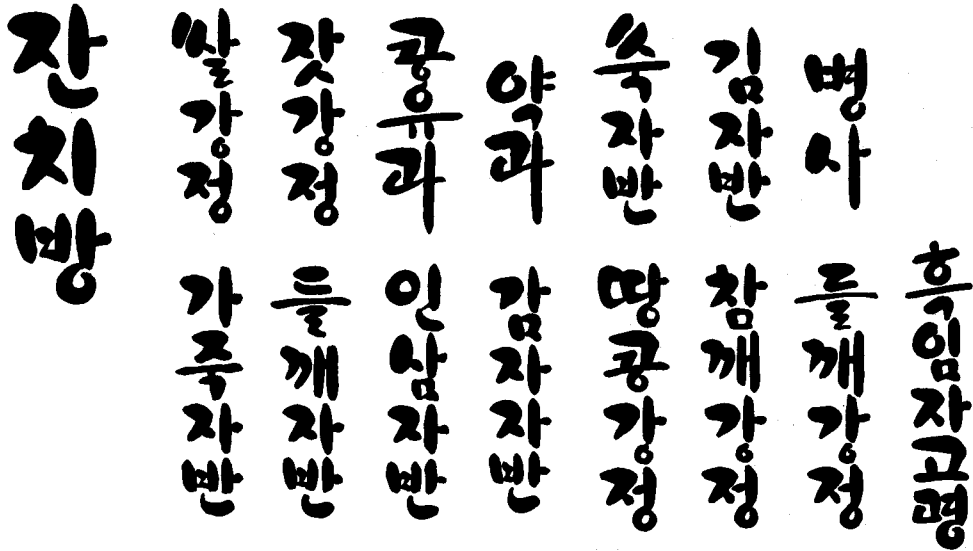 잔치방
쌀강정
잣강정
콩유과
약과
쑥자반
김자반
병사
가죽자반
들깨자반
인삼자반
감자자반
땅콩강정
참깨강정
들깨강정
흑임자고명